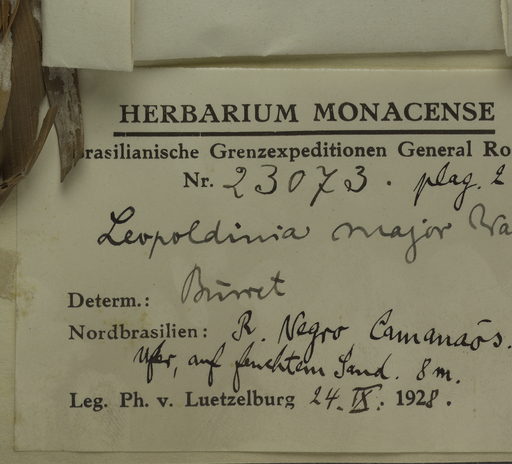 HERBARIUM MONACENSE
rasilianische Grenzexpeditionen General Ro
Nr. 23073. plag. 2
Leopoldinia major Wa
Determ.: Burret
Nordbrasilien: R. Negro Camanaós.
Ufer, auf feuchtem Sand. 8 m.
Leg. Ph. v. Luetzelburg 24. IX. 1928.